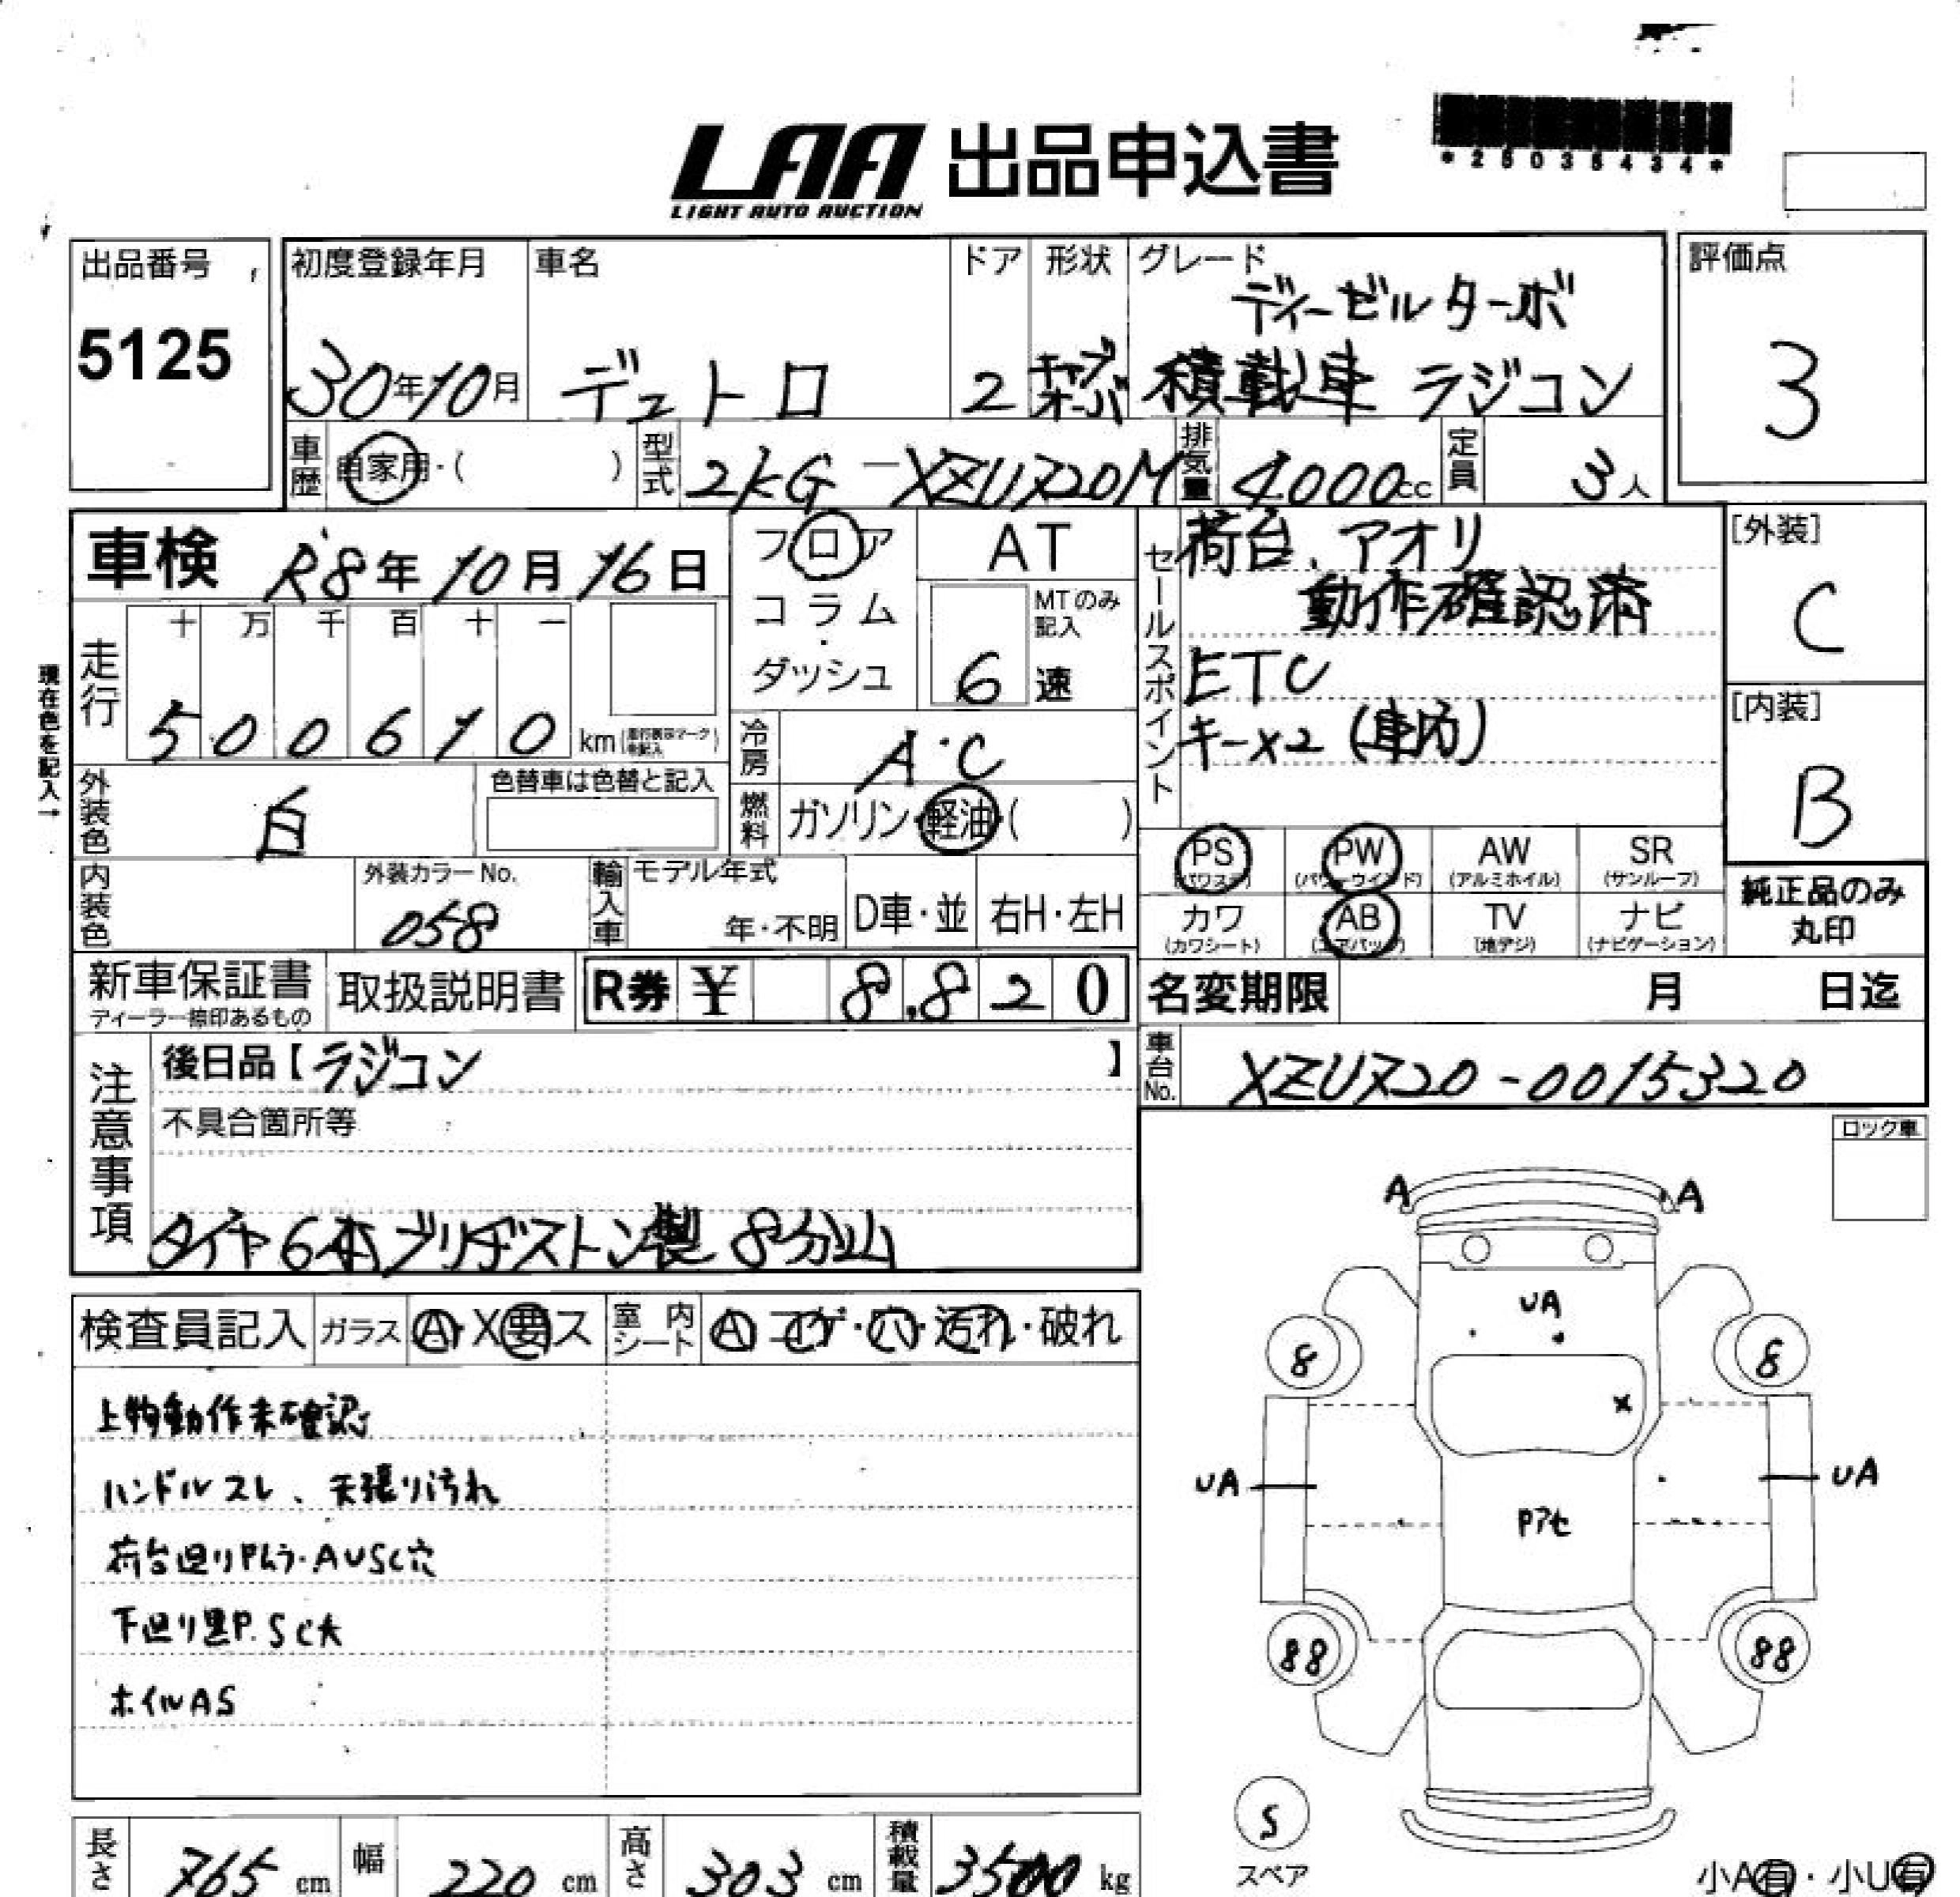 LAA 出品申込書
LIGHT AUTO AUCTION
*25035434*
出品番号
5125
初度登録年月
30年10月
車名
デュトロ
ドア
2
形状
グレード
ディーゼルターボ
積載車 ラジコン
評価点
3
車歴 自家用・( )
型式 2KG-XZU720M
排気量 4000cc
定員 3人
車検 R8年10月16日
現在色を記入→
走行
十 万 千 百 十 一
5 0 0 6 1 0 km
フロア
コラム
・
ダッシュ
AT
MTのみ記入
6 速
冷房 A・C
燃料 ガソリン・軽油・( )
セールスポイント
荷台、アオリ
動作確認済
ETC
キー×2 (車内)
[外装]
C
[内装]
B
外装色 白
色替車は色替と記入
内装色
外装カラーNo.
058
輸入車
モデル年式
年・不明
D車・並
右H・左H
PS
(パワステ)
PW
(パワーウインド)
AW
(アルミホイル)
SR
(サンルーフ)
カワ
(カワシート)
AB
(エアバッグ)
TV
(地デジ)
ナビ
(ナビゲーション)
純正品のみ
丸印
新車保証書
ディーラー捺印あるもの
取扱説明書
R券 ¥ 8,820
名変期限 月 日迄
車台No. XZU720-0015320
注意事項
後日品【ラジコン】
不具合箇所等
タイヤ6本ブリヂストン製 8分山
ロック車
検査員記入
ガラス A・X要ス
室内シート A コゲ・穴・汚れ・破れ
上物動作未確認
ハンドルスレ、天張り汚れ
荷台廻りPムラ・AUSC穴
下廻り黒P.SC大
ホイルAS
A
A
UA
8
8
×
UA
UA
Pアセ
88
88
S
スペア
小A有・小U有
長さ 765 cm
幅 220 cm
高さ 303 cm
積載量 3500 kg